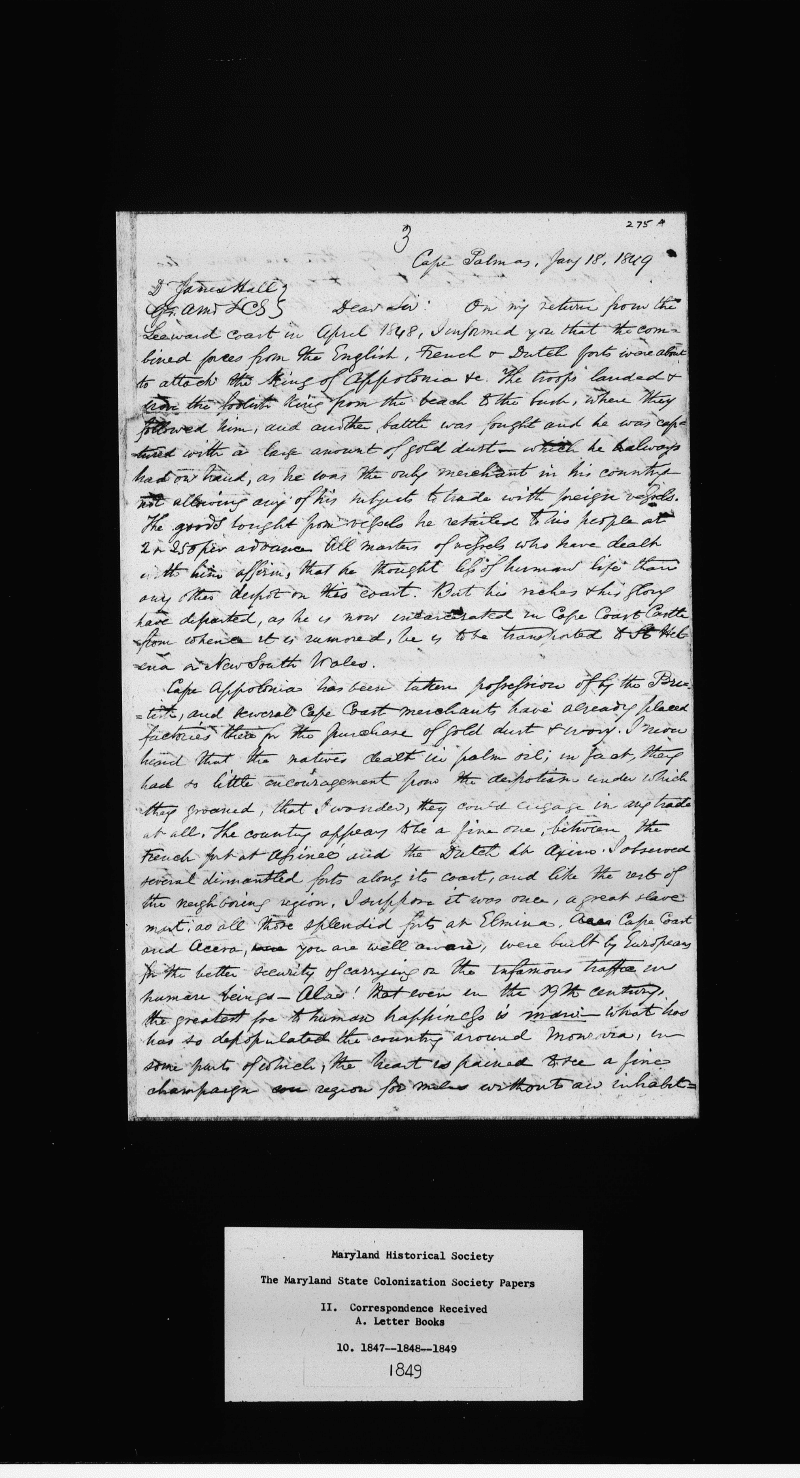 3
275 A
Cape Palmas, Jany 18, 1849
Dr James Hall
Dear Sir: On my return from the
Leeward coast in April 1848, I informed you that the com-
bined forces from the English, French & Dutch forts were about
to attack the King of Appolonia &c. The troops landed &
the foolish King from the beach to the bush, where they
followed him, and another battle was fought and he was cap-
tured with a large amount of gold dust — which he always
had on hand, as he was the only merchant in his country
not allowing any of his subjects to trade with foreign vessels.
The goods bought from vessels he retailed to his people at
2 a 250 per advance All masters of vessels who have dealt
with him affirm, that he thought less of human life than
any other despot on this coast. But his riches & his glory
have departed, as he is now incarcerated in Cape Coast Castle
from whence it is rumored, he is to be transported to St Hel-
ena or New South Wales.
Cape Appolonia has been taken possession of by the Brit-
=tish, and several Cape Coast merchants have already placed
factories there for the purchase of gold dust & ivory. I never
heard that the natives dealt in palm oil; in fact, they
had so little encouragement from the despotism under which
they groaned, that I wonder, they could engage in any trade
at all. The country appears to be a fine one, between the
French fort at Assinee and the Dutch at Axim. I observed
several dismantled forts along its coast, and like the rest of
the neighboring region, I suppose it was once, a great slave
mart; as all those splendid forts at Elmina, Cape Coast
and Accra, you are well aware, were built by Europeans
for the better security of carrying on the infamous traffic in
human beings — Alas! that even in the 19th century,
the greatest foe to human happiness is man — What has
has so depopulated the country around Monrovia, in
some parts of which, the heart is pained to see a fine
champaign region for miles without an inhabit=
Maryland Historical Society
The Maryland State Colonization Society Papers
II. Correspondence Received
A. Letter Books
10. 1847--1848--1849
1849